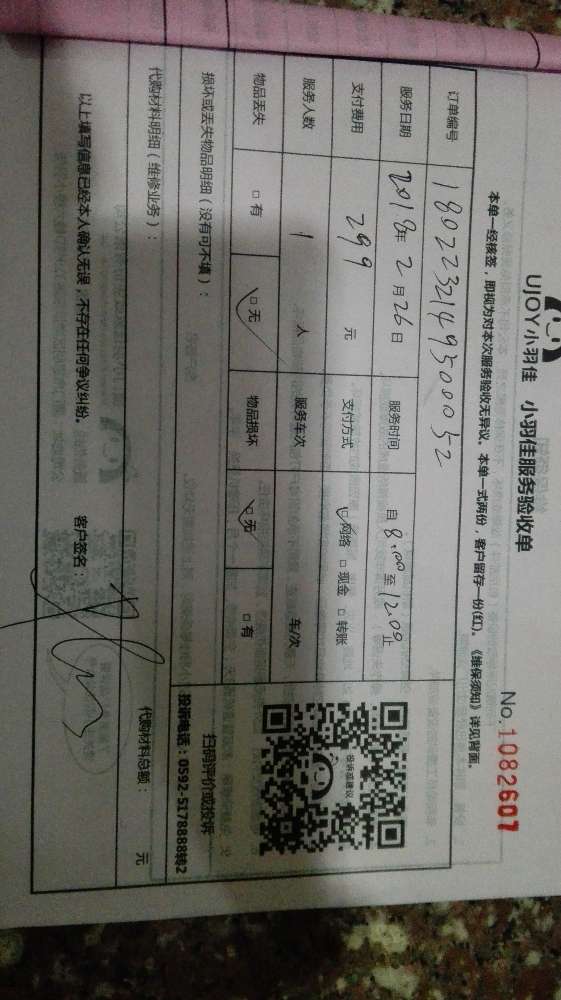 UJOY小羽佳 小羽佳服务验收单
No.1082607
本单一经核签，即视为对本次服务验收无异议。本单一式两份，客户留存一份(红)。《维保须知》详见背面。
订单编号 180223214950052
服务日期 2018年2月26日 服务时间 自8:00至12:00止
支付费用 299 元 支付方式 □网络 □现金 □转账
服务人数 1 人 服务车次 车/次
物品丢失 □有 □无 物品损坏 □无 □有
投诉或建议
扫码评价或投诉
投诉电话：0592-5178888转2
损坏或丢失物品明细（没有可不填）：
代购材料明细（维修业务）：
代购材料总额： 元
以上填写信息已经本人确认无误，不存在任何争议纠纷。 客户签名：